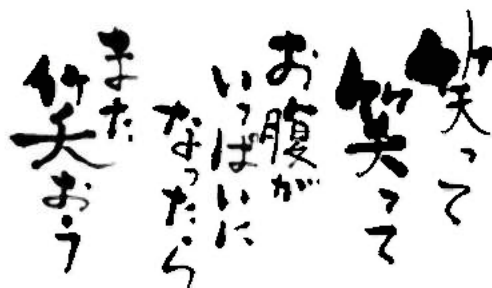 笑って
笑って
お腹が
いっぱいに
なったら
また
笑おう